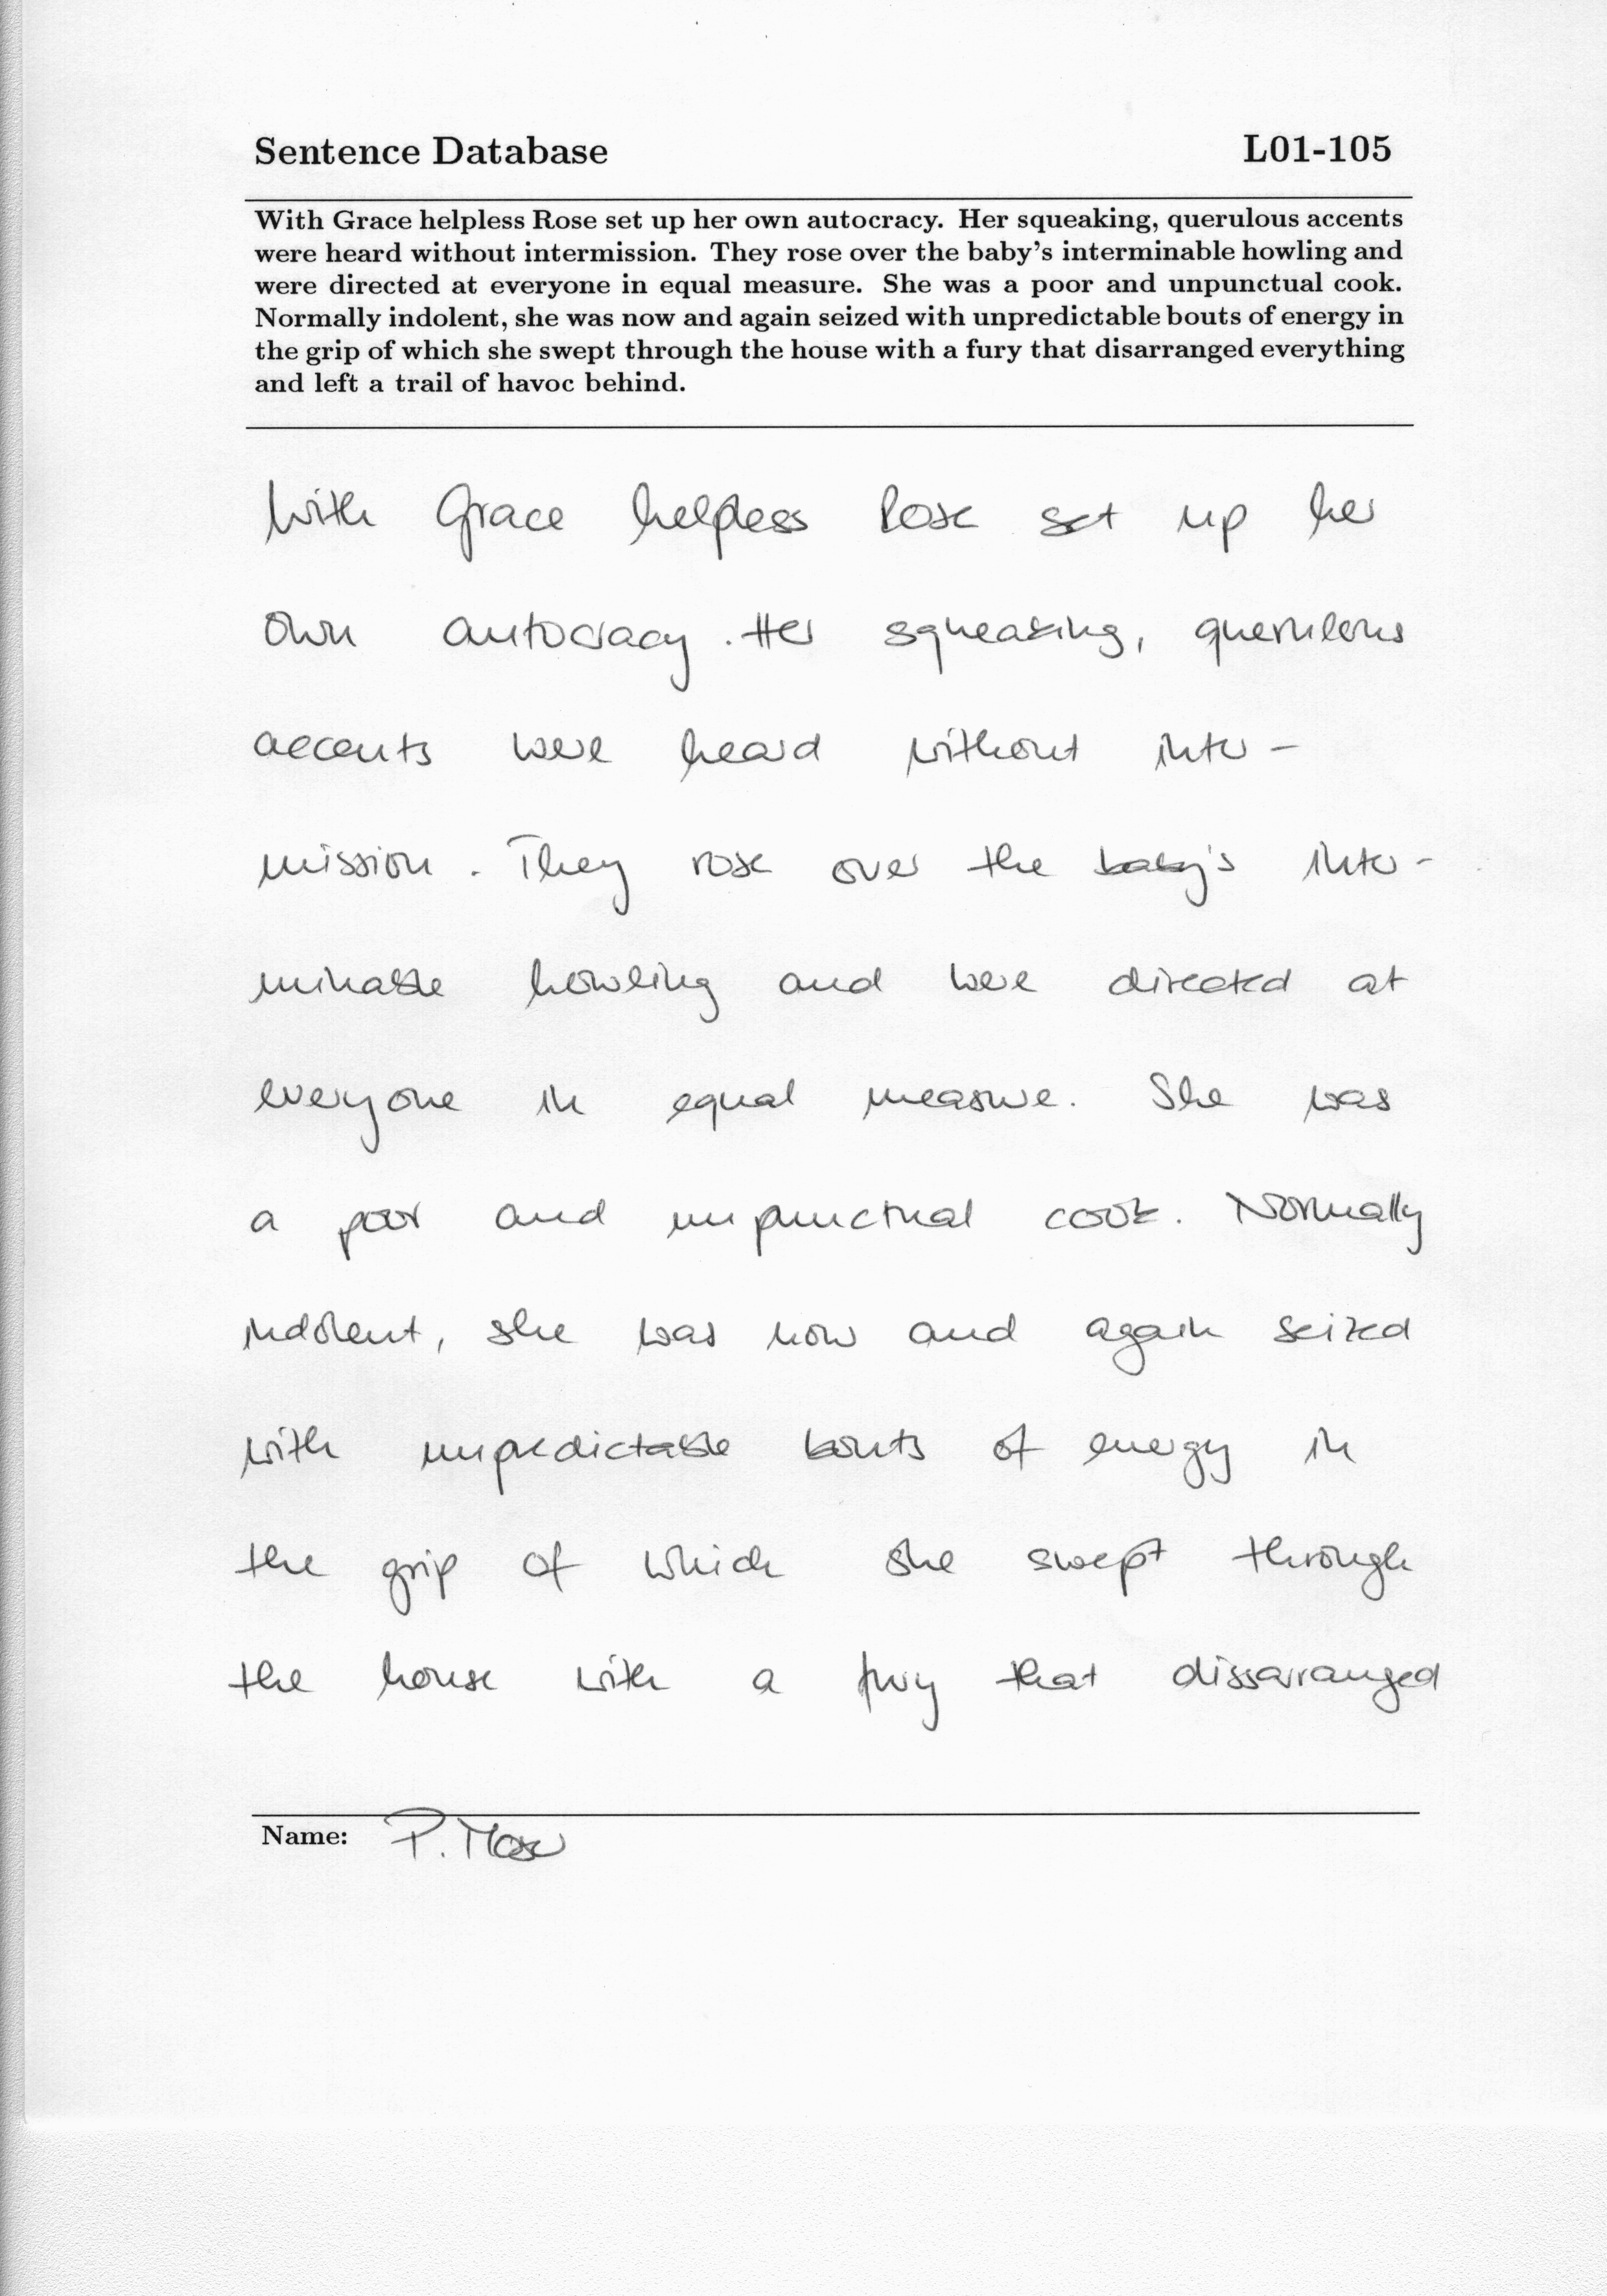 Sentence Database L01-105
With Grace helpless Rose set up her own autocracy. Her squeaking, querulous accents
were heard without intermission. They rose over the baby's interminable howling and
were directed at everyone in equal measure. She was a poor and unpunctual cook.
Normally indolent, she was now and again seized with unpredictable bouts of energy in
the grip of which she swept through the house with a fury that disarranged everything
and left a trail of havoc behind.
With Grace helpless Rose set up her
own autocracy. Her squeaking, querulous
accents were heard without inter-
mission. They rose over the baby's inter-
minable howling and were directed at
everyone in equal measure. She was
a poor and unpunctual cook. Normally
indolent, she was now and again seized
with unpredictable bouts of energy in
the grip of which she swept through
the house with a fury that dissarranged
Name: P.